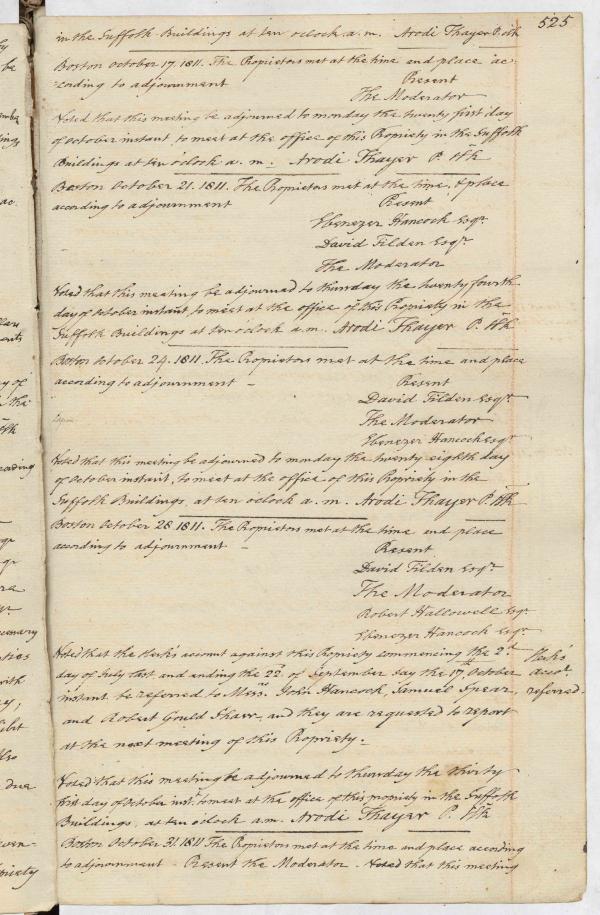 525
in the Suffolk Buildings at ten oclock a. m. Arodi Thayer P. Clk
Boston October 17. 1811. The Propietors met at the time and place ac-
cording to adjournment Present
The Moderator
Voted that this meeting be adjourned to monday the twenty first day
of October instant, to meet at the office of this Propriety in the Suffolk
Buildings at ten oclock a. m. Arodi Thayer P. Clk
Boston October 21. 1811. The Propietors met at the time, & place
according to adjournment Present
Ebenezer Hancock Esqr.
David Tilden Esqr.
The Moderator
Voted that this meeting be adjourned to thursday the twenty fourth
day of October instant to meet at the office of this Propriety in the
Suffolk Buildings at ten oclock a. m. Arodi Thayer P. Clk
Boston October 24. 1811. The Proprietors met at the time and place
according to adjournment – Present
David Tilden Esqr.
The Moderator
Ebenezer Hancock Esqr
Voted that this meeting be adjourned to monday the twenty eighth day
of October instant, to meet at the office of this Propriety in the
Suffolk Buildings, at ten oclock a. m. Arodi Thayer P. Clk
Boston October 28 1811. The Propietors met at the time and place
according to adjournment – Present
David Tilden Esqr.
The Moderator
Robert Hallowell Esqr.
Ebenezer Hancock Esqr.
Voted that the Clerk's account against this Propriety commencing the 2d
day of July last and ending the 22d. of September day the 17th October
instant be referred to Messrs. John Hancock, Samuel Spear,
and Robert Gould Shaw, and they are requested to report
at the next meeting of this Propriety.
Clerk's
accot.
referred.
Voted that this meeting be adjourned to thursday the thirty
first day of October inst. to meet at the office of this propriety in the Suffolk
Buildings, at ten o'clock a.m. Arodi Thayer P. Clk
Boston October 31. 1811 The Propietors met at the time and place according
to adjournment - Present the Moderator. Voted that this meeting